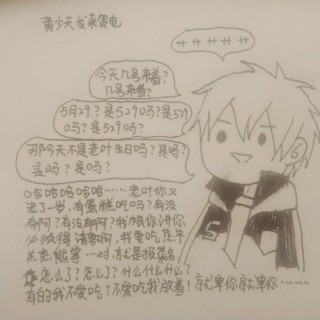 黄少天发来贺电
艹艹艹艹
今天几号来着？
几号来着？
5月29？是529吗？是529
吗？是529吗？
那今天不是老叶生日吗？是吗？
是吗？是吗？
哈哈哈哈哈……老叶你又
老了一岁，有蛋糕吃吗？有没
有啊？有没有啊？我跟你讲你
必须得请客啊，我要吃
……对就是报菜名
怎么了？怎么了？什么什么什么？
有的我不爱吃？不爱吃我放着！就宰你就宰你……